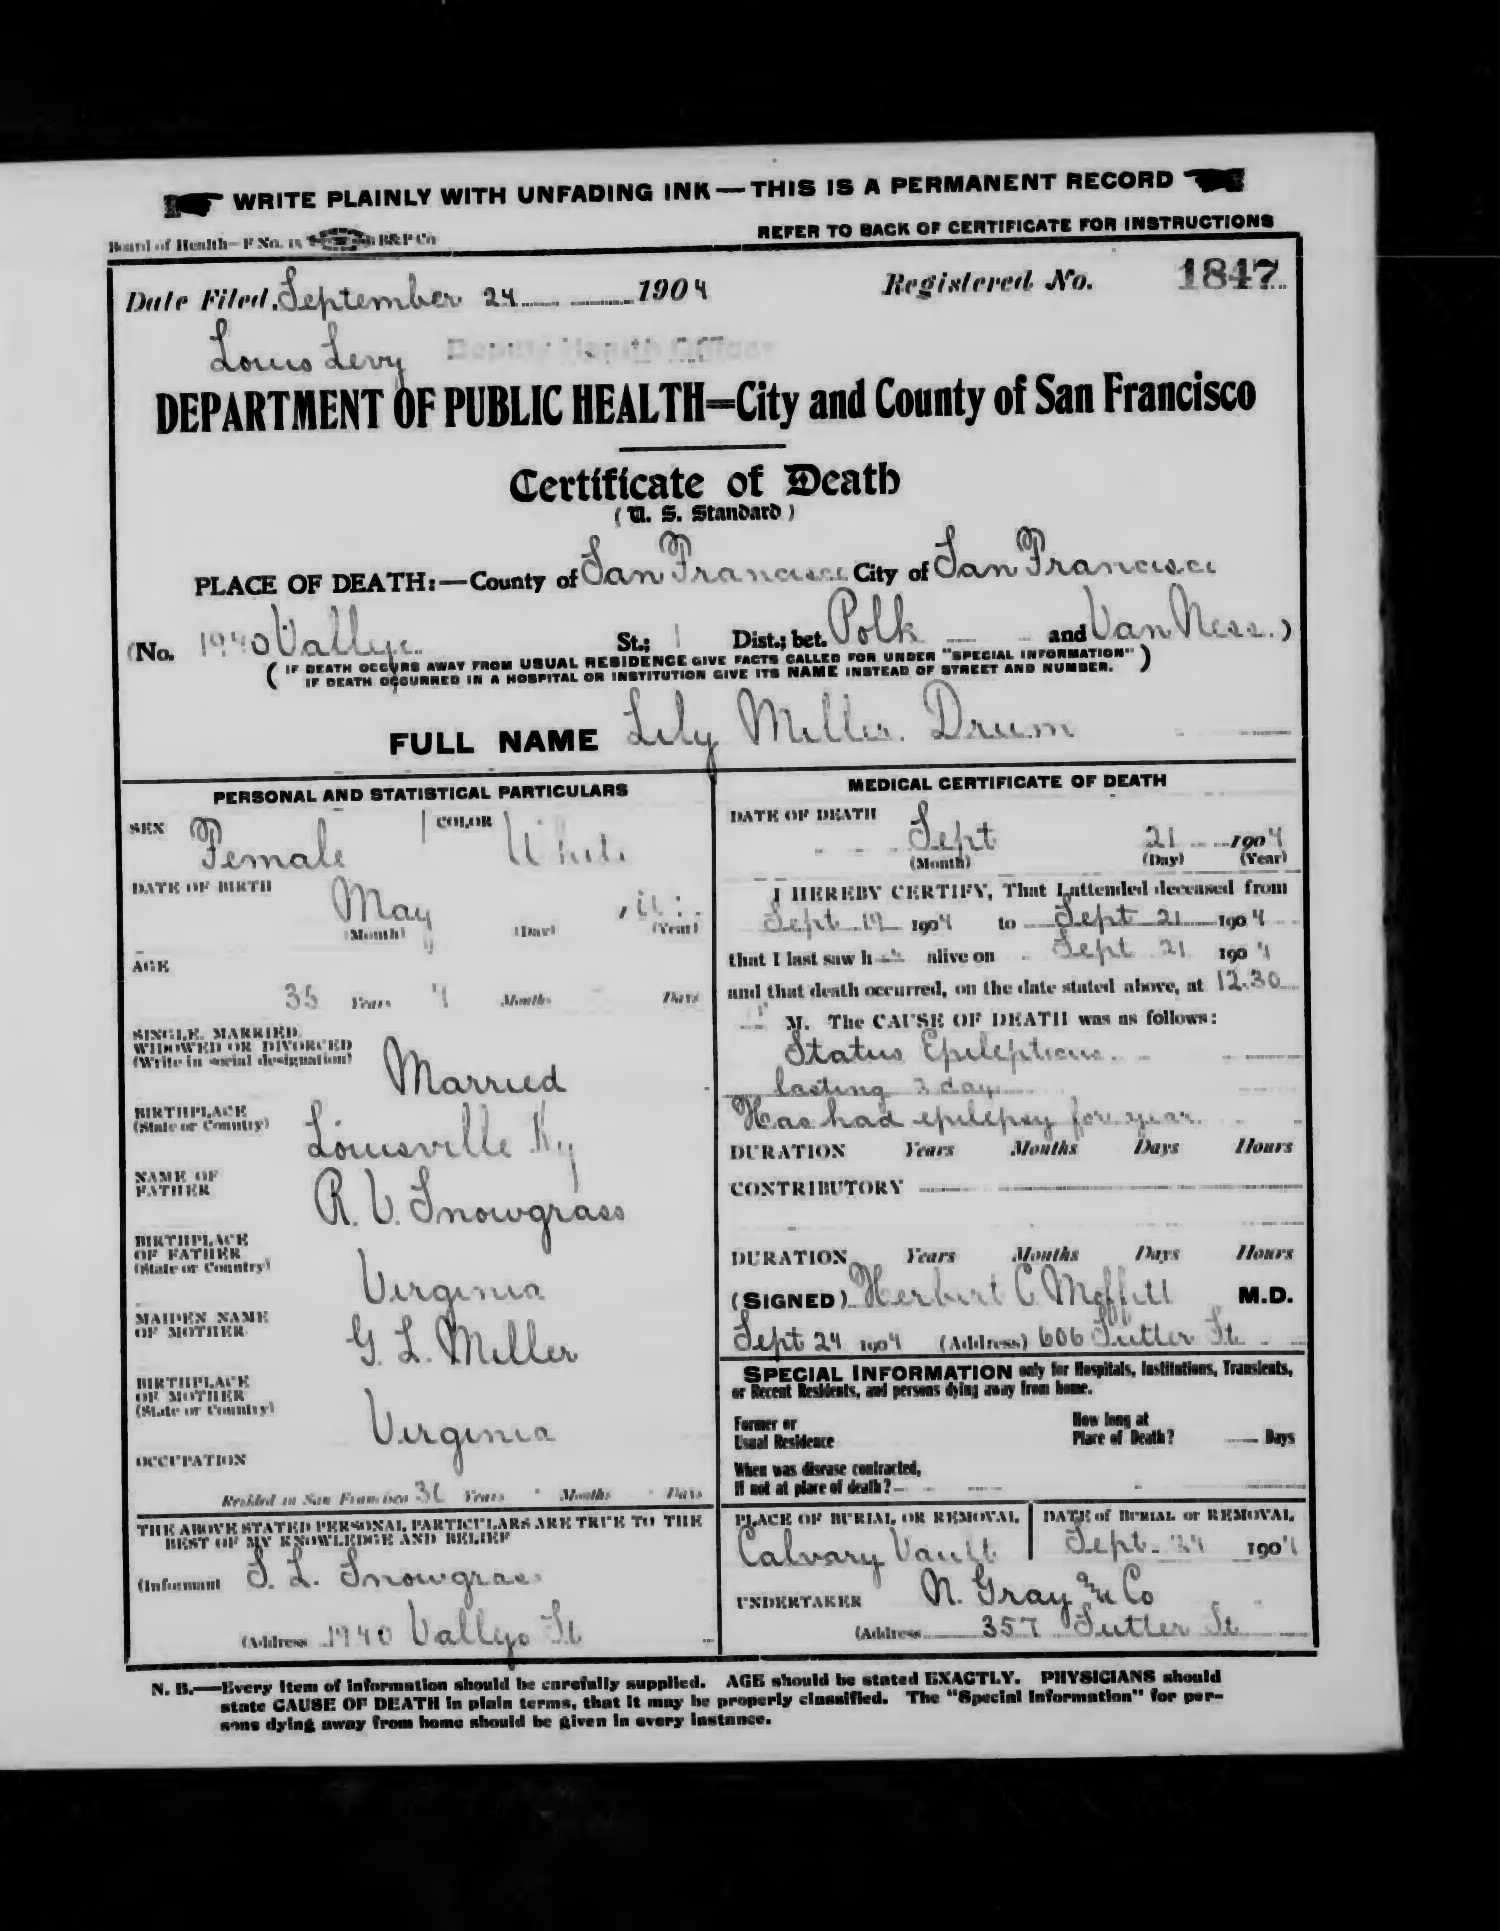 WRITE PLAINLY WITH UNFADING INK — THIS IS A PERMANENT RECORD
Board of Health—F No. 15 B&P Co
REFER TO BACK OF CERTIFICATE FOR INSTRUCTIONS
Date Filed, September 24 1904 Registered No. 1847
Louis Levy Deputy Health Officer
DEPARTMENT OF PUBLIC HEALTH=City and County of San Francisco
Certificate of Death
(U. S. Standard)
PLACE OF DEATH:—County of San Francisco City of San Francisco
(No. 1940 Vallejo St.; 1 Dist.; bet. Polk and Van Ness.)
( IF DEATH OCCURS AWAY FROM USUAL RESIDENCE GIVE FACTS CALLED FOR UNDER "SPECIAL INFORMATION" )
IF DEATH OCCURRED IN A HOSPITAL OR INSTITUTION GIVE ITS NAME INSTEAD OF STREET AND NUMBER.
FULL NAME Lily Miller Drum
PERSONAL AND STATISTICAL PARTICULARS
SEX Female COLOR White
DATE OF BIRTH May
(Month) (Day) (Year)
AGE
35 Years 4 Months Days
SINGLE, MARRIED,
WIDOWED OR DIVORCED
(Write in social designation) Married
BIRTHPLACE
(State or Country) Louisville Ky
NAME OF
FATHER R. V. Snowgrass
BIRTHPLACE
OF FATHER
(State or Country) Virginia
MAIDEN NAME
OF MOTHER G. L. Miller
BIRTHPLACE
OF MOTHER
(State or Country) Virginia
OCCUPATION
Resided in San Francisco Years Months Days
THE ABOVE STATED PERSONAL PARTICULARS ARE TRUE TO THE
BEST OF MY KNOWLEDGE AND BELIEF
(Informant S. L. Snowgrass
(Address 1940 Vallejo St
MEDICAL CERTIFICATE OF DEATH
DATE OF DEATH
Sept 21 1904
(Month) (Day) (Year)
I HEREBY CERTIFY, That I attended deceased from
Sept 19 1904 to Sept 21 1904
that I last saw her alive on Sept 21 1904
and that death occurred, on the date stated above, at 12.30
M. The CAUSE OF DEATH was as follows:
Status Epilepticus
lasting 3 days
Has had epilepsy for years
DURATION Years Months Days Hours
CONTRIBUTORY
DURATION Years Months Days Hours
(SIGNED) Herbert C. Moffitt M.D.
Sept 24 1904 (Address) 606 Sutter St
SPECIAL INFORMATION only for Hospitals, Institutions, Transients,
or Recent Residents, and persons dying away from home.
Former or
Usual Residence
How long at
Place of Death? Days
When was disease contracted,
If not at place of death?
PLACE OF BURIAL OR REMOVAL DATE of BURIAL or REMOVAL
Calvary Vault Sept. 24 1904
UNDERTAKER N. Gray and Co
(Address 357 Sutter St
N. B.—Every item of information should be carefully supplied. AGE should be stated EXACTLY. PHYSICIANS should
state CAUSE OF DEATH in plain terms, that it may be properly classified. The "Special Information" for per-
sons dying away from home should be given in every instance.